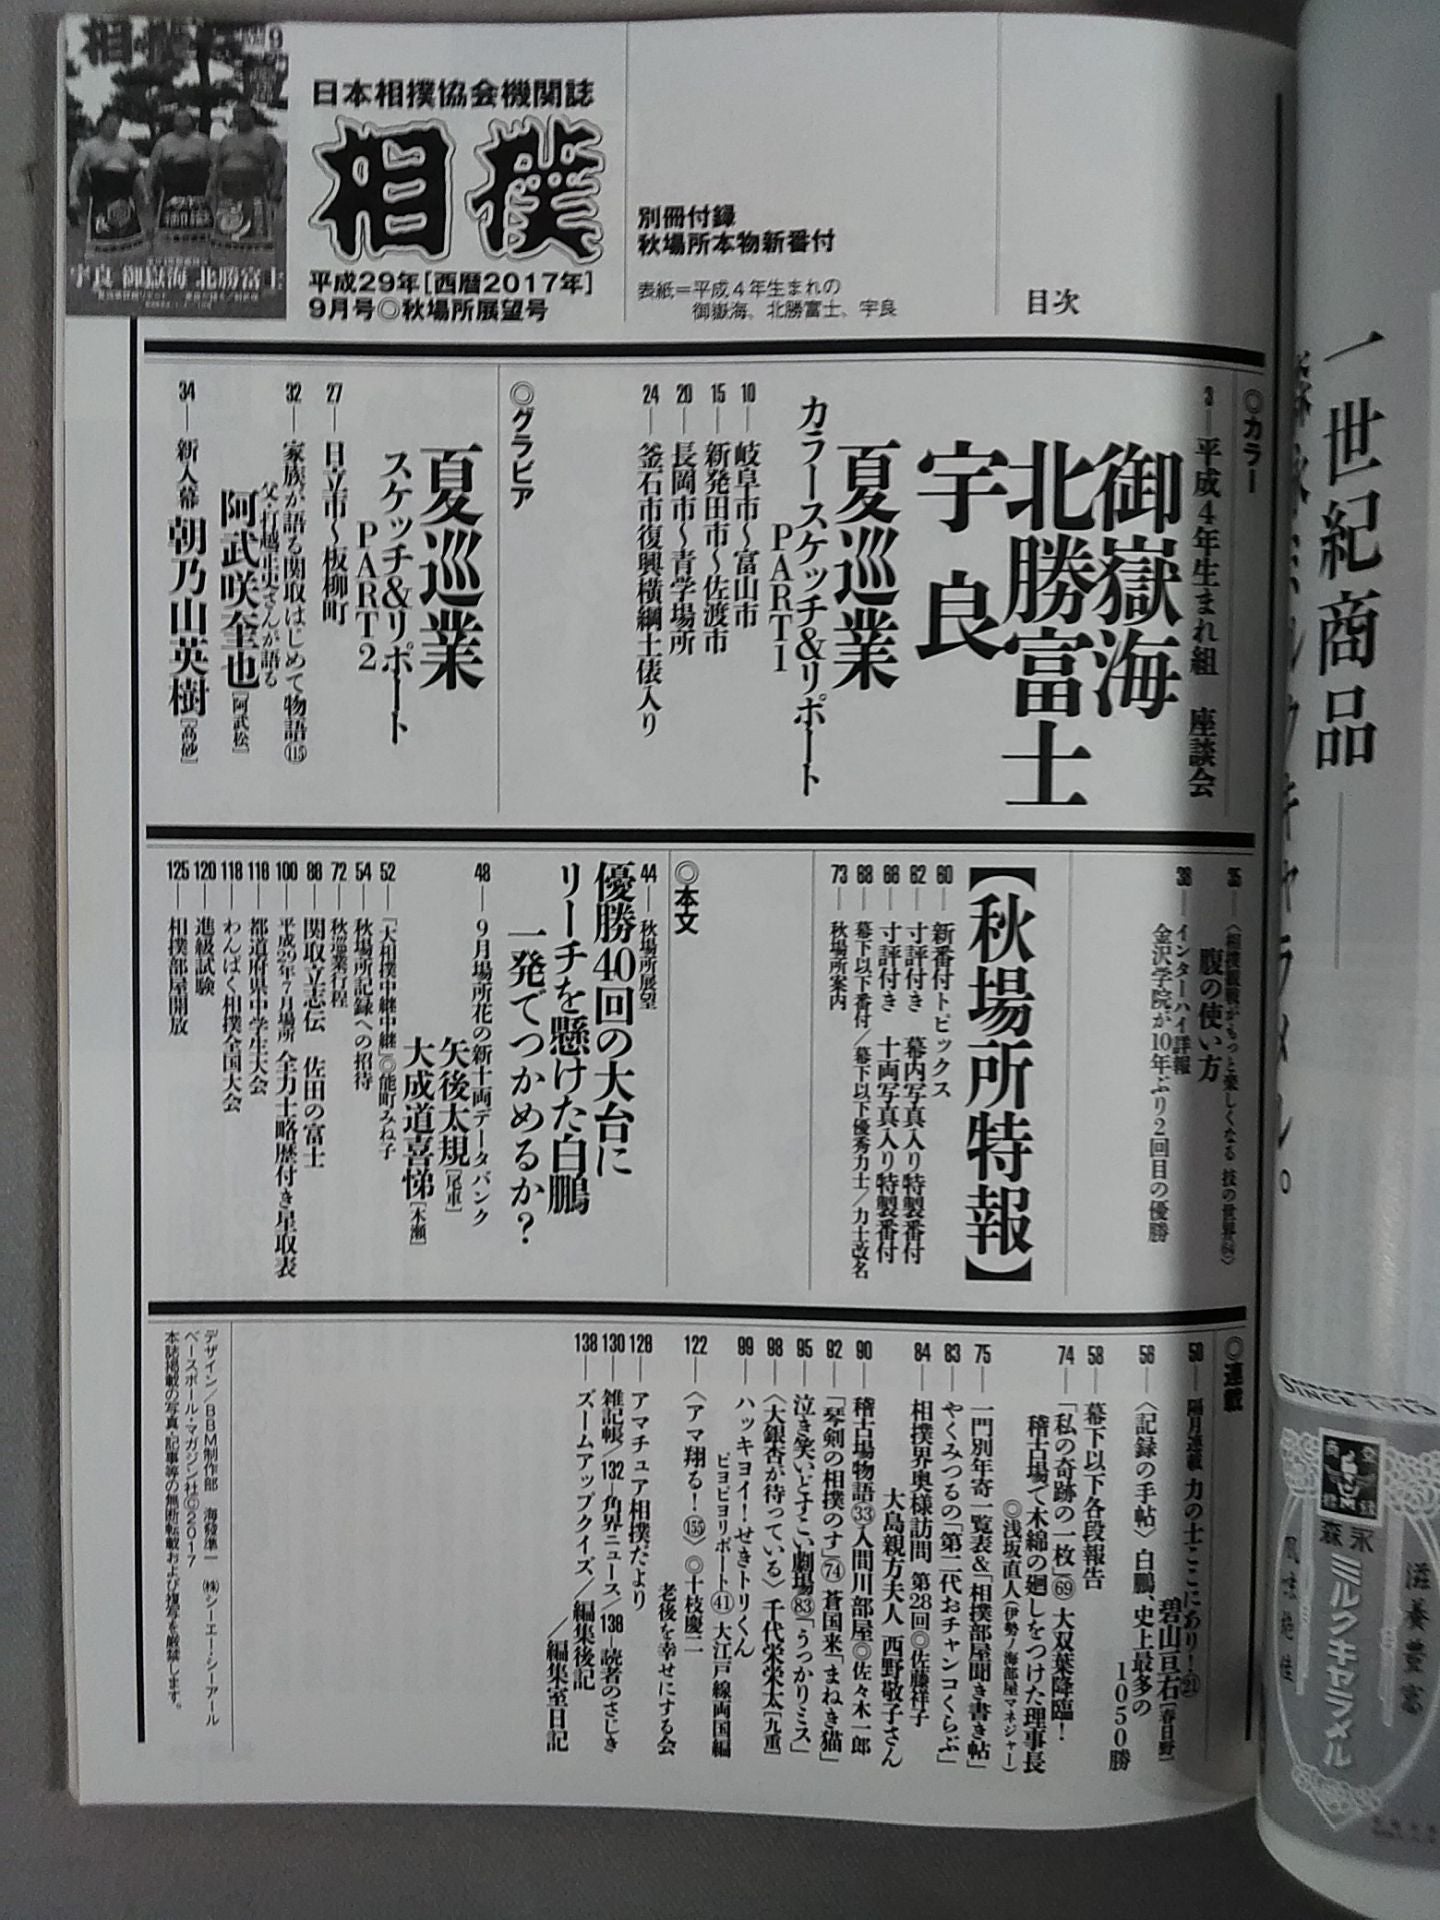 日本相撲協会機関誌
相撲
平成29年[西暦2017年]
9月号◎秋場所展望号
別冊付録
秋場所本物新番付
表紙=平成4年生まれの
御嶽海、北勝富士、宇良
目次
◎カラー
3—平成4年生まれ組 座談会
御嶽海
北勝富士
宇良
夏巡業
カラースケッチ&リポート
PART1
10—岐阜市〜富山市
15—新発田市〜佐渡市
20—長岡市〜青学場所
24—釜石市復興横綱土俵入り
◎グラビア
夏巡業
スケッチ&リポート
PART2
27—日立市〜板柳町
32—家族が語る関取はじめて物語⑮
父・打越正史さんが語る
阿武咲奎也[阿武松]
34—新入幕 朝乃山英樹[高砂]
35—〈相撲観戦がもっと楽しくなる 技の世界〉
腹の使い方
38—インターハイ詳報
金沢学院が10年ぶり2回目の優勝
【秋場所特報】
60—新番付トピックス
62—寸評付き 幕内写真入り特製番付
66—寸評付き 十両写真入り特製番付
68—幕下以下番付/幕下以下優秀力士/力士改名
73—秋場所案内
◎本文
44—秋場所展望
優勝40回の大台に
リーチを懸けた白鵬
一発でつかめるか?
48—9月場所花の新十両データバンク
矢後太規[尾車]
大成道喜悌[木瀬]
52—「大相撲中継中継」◎能町みね子
54—秋場所記録への招待
72—秋巡業行程
88—関取立志伝 佐田の富士
100—平成29年7月場所 全力士略歴付き星取表
118—都道府県中学生大会
118—わんぱく相撲全国大会
120—進級試験
125—相撲部屋開放
◎連載
50—隔月連載 力の士ここにあり!㉑
碧山亘右[春日野]
56—〈記録の手帖〉白鵬、史上最多の
1050勝
58—幕下以下各段報告
74—「私の奇跡の一枚」69 大双葉降臨!
稽古場で木綿の廻しをつけた理事長
◎浅坂直人(伊勢ノ海部屋マネジャー)
75—一門別年寄一覧表&「相撲部屋聞き書き帖」
83—やくみつるの「第二代おチャンコくらぶ」
84—相撲界奥様訪問 第28回◎佐藤祥子
大島親方夫人 西野敬子さん
90—稽古場物語㉝入間川部屋◎佐々木一郎
92—「琴剣の相撲のす」74 蒼国来「まねき猫」
95—泣き笑いどすこい劇場83「うっかりミス」
98—〈大銀杏が待っている〉千代栄栄太[九重]
99—ハッキヨイ!せきトリくん
ピヨピヨリポート㊶ 大江戸線両国編
122—〈アマ翔る!155〉◎十枝慶二
老後を幸せにする会
128—アマチュア相撲だより
130—雑記帳/132—角界ニュース/138—読者のさじき
138—ズームアップクイズ/編集後記
/編集室日記
デザイン/BBM制作部 海發準一 ㈱シーエー・シーアール
ベースボール・マガジン社©2017
本誌掲載の写真・記事等の無断転載および複写を厳禁します。
一世紀商品—
SINCE 1913
森永
ミルクキャラメル
滋養豊富